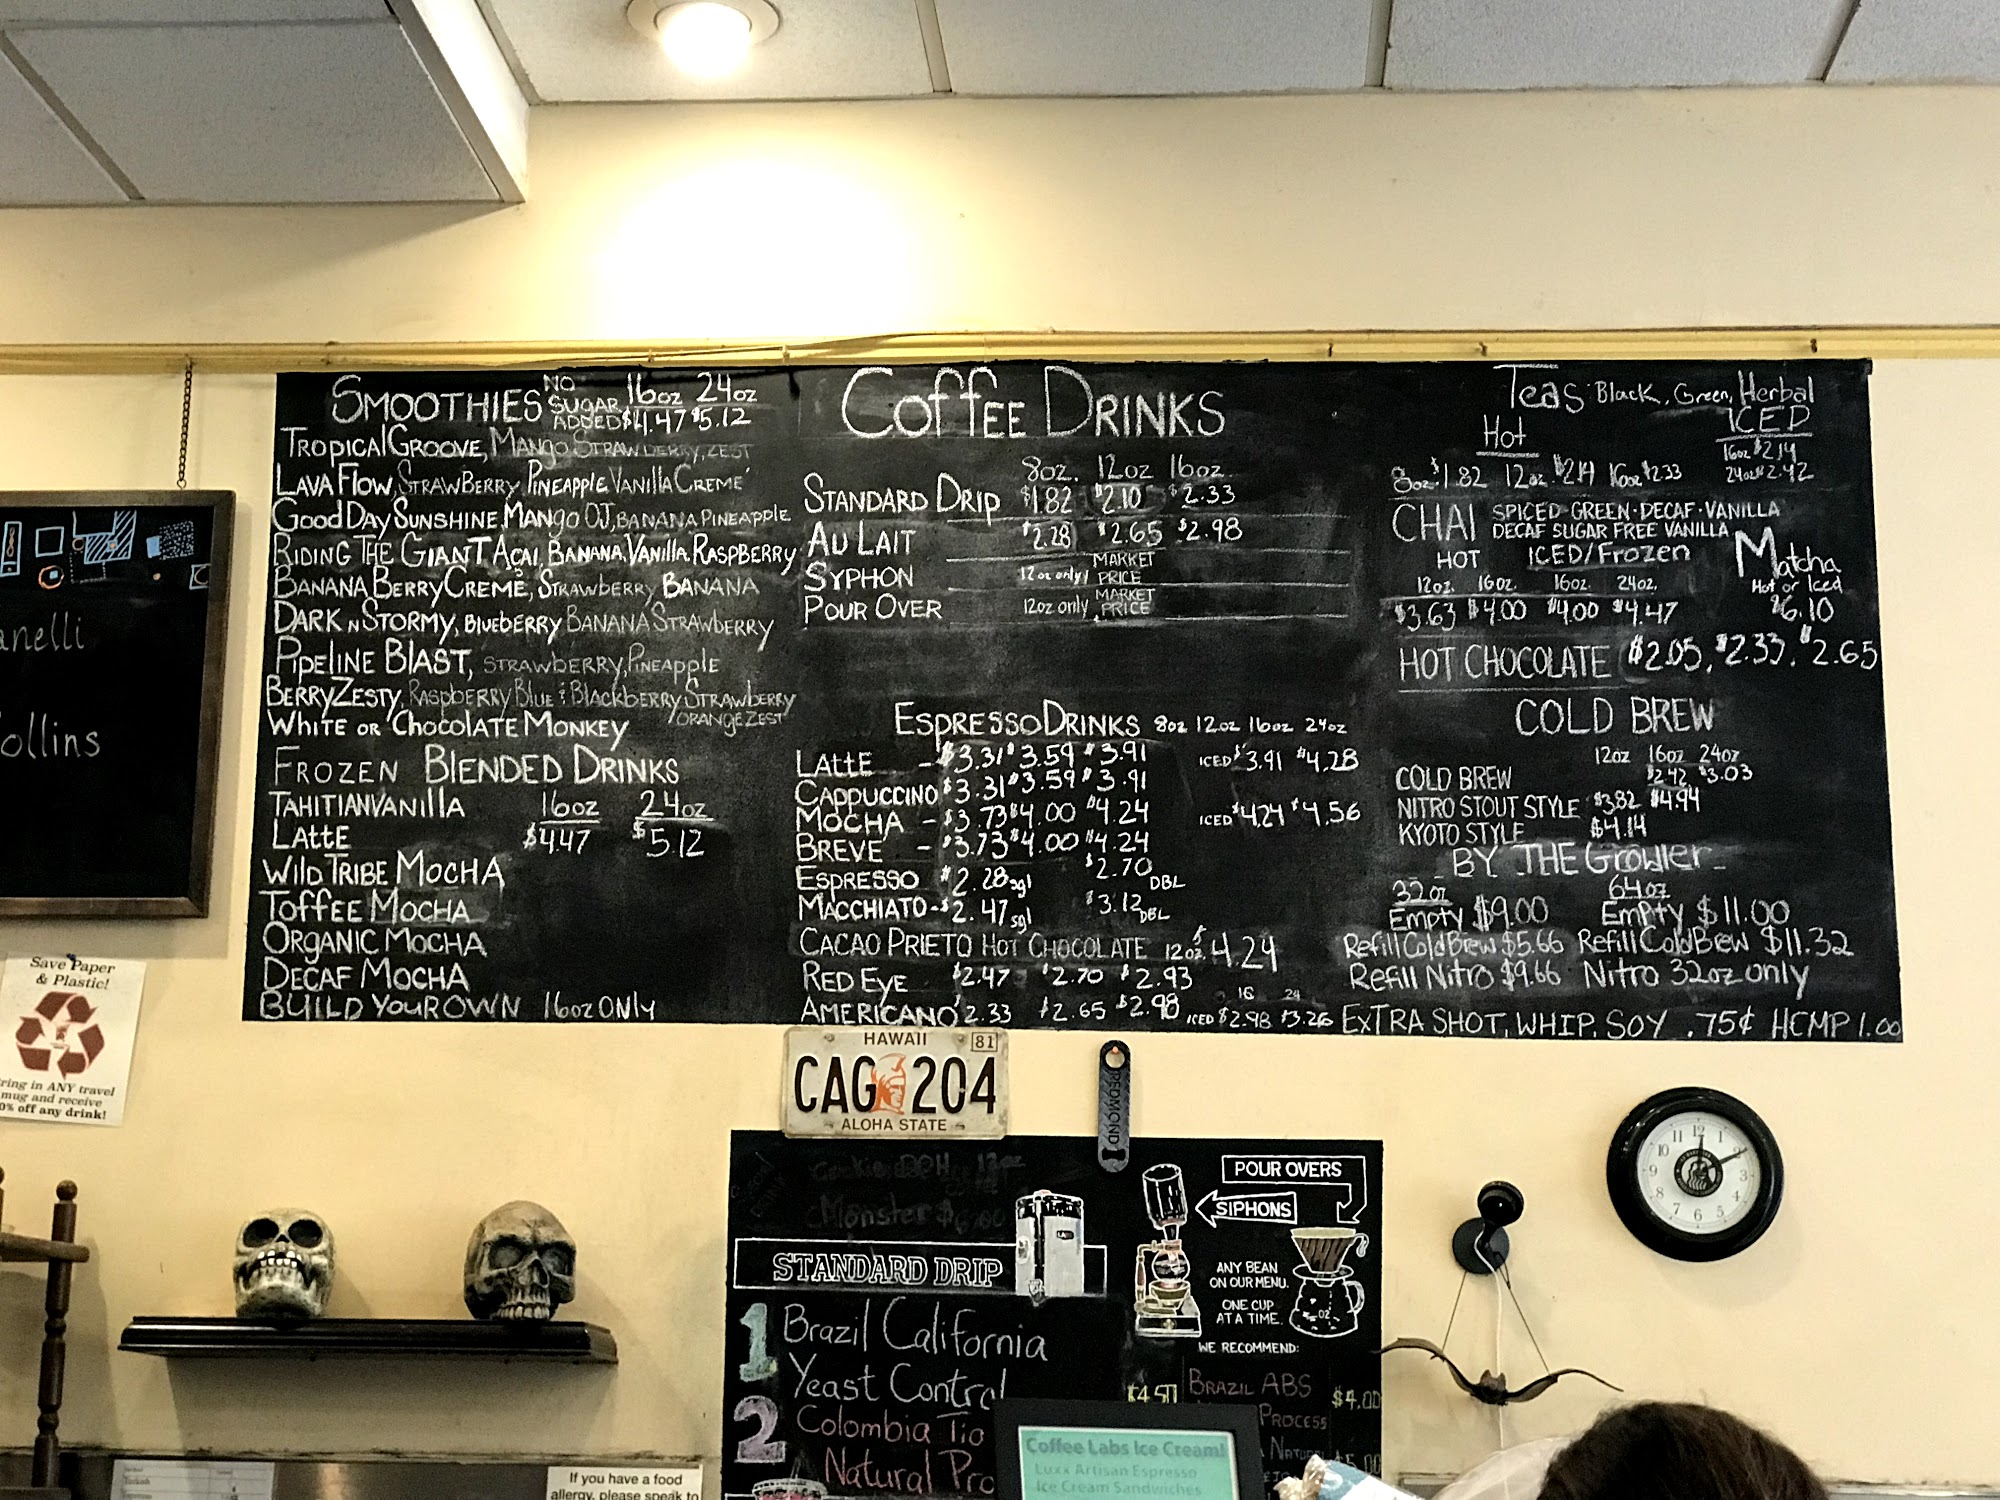 SMOOTHIES NO SUGAR ADDED 16oz 24oz
$4.47 $5.12
TROPICAL GROOVE, MANGO STRAWBERRY, ZEST
LAVA FLOW, STRAWBERRY PINEAPPLE VANILLA CREME
GOOD DAY SUNSHINE, MANGO OJ, BANANA PINEAPPLE
RIDING THE GIANT AÇAI, BANANA, VANILLA, RASPBERRY
BANANA BERRY CREME, STRAWBERRY BANANA
DARK N STORMY, BLUEBERRY BANANA STRAWBERRY
PIPELINE BLAST, STRAWBERRY, PINEAPPLE
BERRY ZESTY, RASPBERRY BLUE & BLACKBERRY STRAWBERRY
ORANGE ZEST
WHITE OR CHOCOLATE MONKEY
FROZEN BLENDED DRINKS
TAHITIAN VANILLA 16oz 24oz
LATTE $4.47 $5.12
WILD TRIBE MOCHA
TOFFEE MOCHA
ORGANIC MOCHA
DECAF MOCHA
BUILD YOUR OWN 16oz ONLY
COFFEE DRINKS
8oz. 12oz 16oz
STANDARD DRIP $1.82 $2.10 $2.33
AU LAIT $2.28 $2.65 $2.98
SYPHON 12oz only MARKET PRICE
POUR OVER 12oz only MARKET PRICE
ESPRESSO DRINKS 8oz 12oz 16oz 24oz
LATTE - $3.31 $3.59 $3.91 ICED $3.91 $4.28
CAPPUCCINO $3.31 $3.59 $3.91
MOCHA - $3.73 $4.00 $4.24 ICED $4.24 $4.56
BREVE - $3.73 $4.00 $4.24
ESPRESSO $2.28 sgl $2.70 DBL
MACCHIATO - $2.47 sgl $3.12 DBL
CACAO PRIETO HOT CHOCOLATE 12oz. $4.24
RED EYE $2.47 $2.70 $2.93
AMERICANO $2.33 $2.65 $2.98 ICED 16 $2.98 24 $3.26
Teas Black, Green, Herbal
Hot ICED
8oz $1.82 12oz $2.14 16oz $2.33
16oz $2.14
24oz $2.42
CHAI SPICED · GREEN · DECAF · VANILLA
DECAF SUGAR FREE VANILLA
HOT ICED/Frozen
12oz. 16oz. 16oz. 24oz.
$3.63 $4.00 $4.00 $4.47
Matcha
Hot or Iced
$6.10
HOT CHOCOLATE $2.05, $2.33, $2.65
COLD BREW
12oz 16oz 24oz
COLD BREW $2.42 $3.03
NITRO STOUT STYLE $3.82 $4.94
KYOTO STYLE $4.14
BY THE Growler
32oz 64oz
Empty $9.00 Empty $11.00
Refill Cold Brew $5.66 Refill Cold Brew $11.32
Refill Nitro $9.66 Nitro 32oz only
EXTRA SHOT, WHIP, SOY .75¢ HEMP 1.00
anelli
ollins
Save Paper
& Plastic!
ring in ANY travel
mug and receive
0% off any drink!
HAWAII 81
CAG 204
ALOHA STATE
REDMOND
12 1 2 3 4 5 6 7 8 9 10 11
Monster $6.00
STANDARD DRIP
1 Brazil California
Yeast Control
2 Colombia Tio
Natural Pro
$4.50
POUR OVERS
SIPHONS
ANY BEAN
ON OUR MENU.
ONE CUP
AT A TIME.
WE RECOMMEND:
BRAZIL ABS $4.00
PROCESS
Coffee Labs Ice Cream!
Luxx Artisan Espresso
Ice Cream Sandwiches
If you have a food
allergy, please speak to